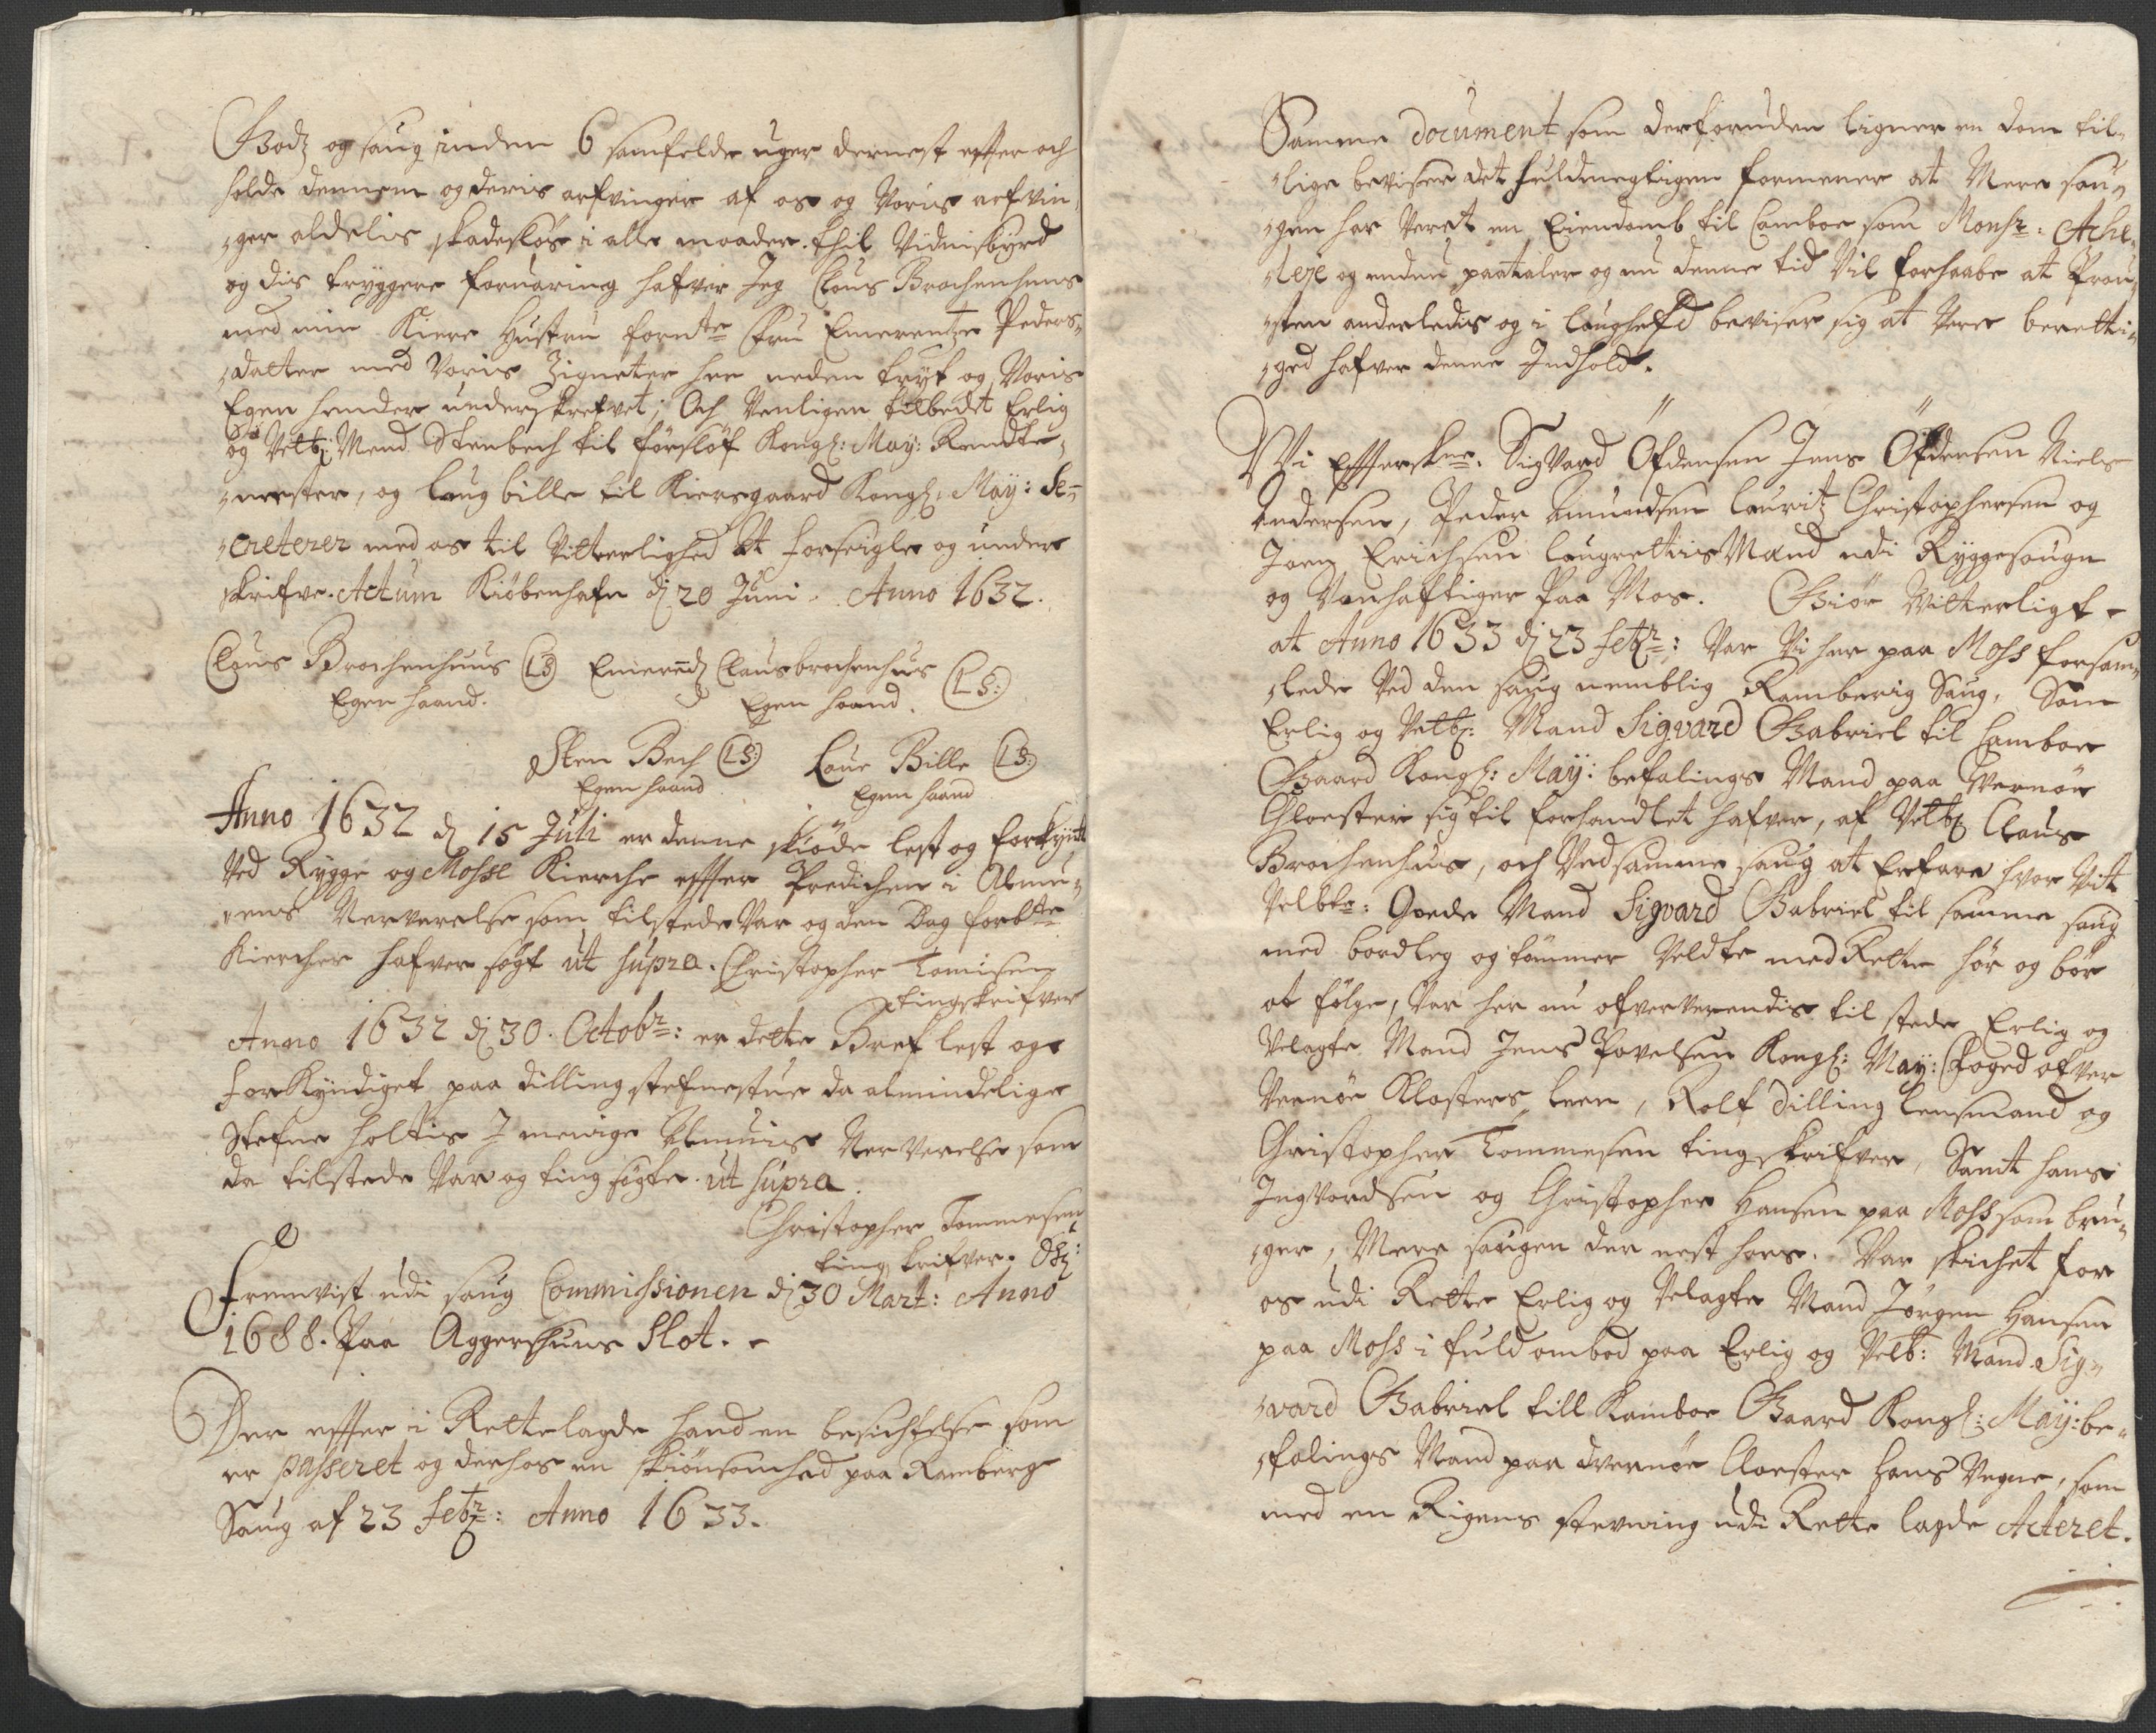 Godz og saug inden 6 samfelde uger dernest effter och
holde dennem og deris arfvinger af os og Voris arfvin,
,ger aldelis skadesløs i alle maader. Thil Vidnisbyrd
og dis tryggere foruaring hafver Jeg Claus Brochenhuus
med min Kiere Hustru fornte Fru Emerentze Peders,
,datter med Voris Zigneter her neden trykt og Voris
Egen hender underskrefvet; Och Venligen tilbedet Erlig
og Velb: Mend Stenbech til førsløf Kongl: May: Rendte,
,mester, og Laug bille til Kiersgaard Kongl: May: Se=
,creterer med os til Vitterlighed At forseigle og under
skrifve. Actum Kiöbenhafn dj 20 Juni. Anno 1632.
Claus Brochenhuus (LS) Emerendz Clausbrochenhuus
Egen haand. Egen haand. (LS:)
Sten Bech (LS:) Laue Bille (LS:)
Egen haand Egen haand
Anno 1632 dj 15 Juli er denne skiøde lest og forkynt
Ved Rygge og Mosse Kierche effter Predichen i Almu,
,ens Nerverelse som tilstede Var og den Dag forbte
Kiercher hafver søgt ut supra. Christopher Tomisen
tingskrifver
Anno 1632 dj 30. Octobr: er dette Bref lest og
forkyndiget paa dilling stefnestue da almindelige
Stefne holtis I menige Almuis Nerverelse som
da tilstede Var og ting søgte ut supra.
Christopher Tommesen
tingskrifver.
Fremvist udi saug Commissionen dj 30 Mart: Anno
1688. Paa Aggershuus Slot.
Der effter i Rettelagde hand en besichtelse som
er passeret og derhos en skiønsomhed paa Ramberg
Saug af 23 Febr: Anno 1633.
Samme document som derforuden ligner en dom til,
,lige beviser det fuldmegtigen formener at Mere sau,
,gen har Veret en Eiendomb til Camboe som Monsr: Ache,
,leje og endnu paataler og nu denne tid Vil forhaabe at Prou,
,sten anderledis og i laughefd beviser sig at Vere beretti,
,ged hafver denne Indhold.
Wi Efftersknr. SigVard Öfdensen Jens Öfdensen Niels
Andersen, Peder Amundsen Lauritz Christophersen og
Joen Erichsen laugrettis Mænd udi Ryggesougn
og Vonhaftiger Paa Mos. Giør Witterligt
at Anno 1633 dj 23 Febr: Var Vi her paa Moss forsam,
,lede Ved den saug nemblig Ramberig Saug, Som
Erlig og Velb: Mand Sigvard Gabriel til Camboe
Gaard Kongl: May: befalings Mand paa Wernøe
Closter sig til forhandlet hafver, af Velb: Claus
Brochenhuus, och Ved samme saug at Erfare hvor Vit
Velbte: Goede Mand Sigvard Gabriel til samme saug
med bordleg og tømmer Veldte med Rette hør og bør
at følge, Var her nu ofververendis til stede Erlig og
Velagte Mand Jens Povelsen Kongl: May: Foged ofver
Vernøe Klosters leen, Rolf Dilling lensmand og
Christopher Tommesen tingskrifver, Samt hans
Ingvordsen og Christopher Hansen paa Moss som bru,
,ger, Mere saugen der nest hoes. Var skichet for
os udi Rette Erlig og Velagte Mand Jørgen Hansen
paa Moss i fuld ombod paa Erlig og Velb: Mand Sig,
,vard Gabriel till Kamboe Gaard Kongl: May: be,
,falings Mand paa Wernøe Closter hans Vegne, som
med en Rigens stevning udi Rette lagde Acteret.